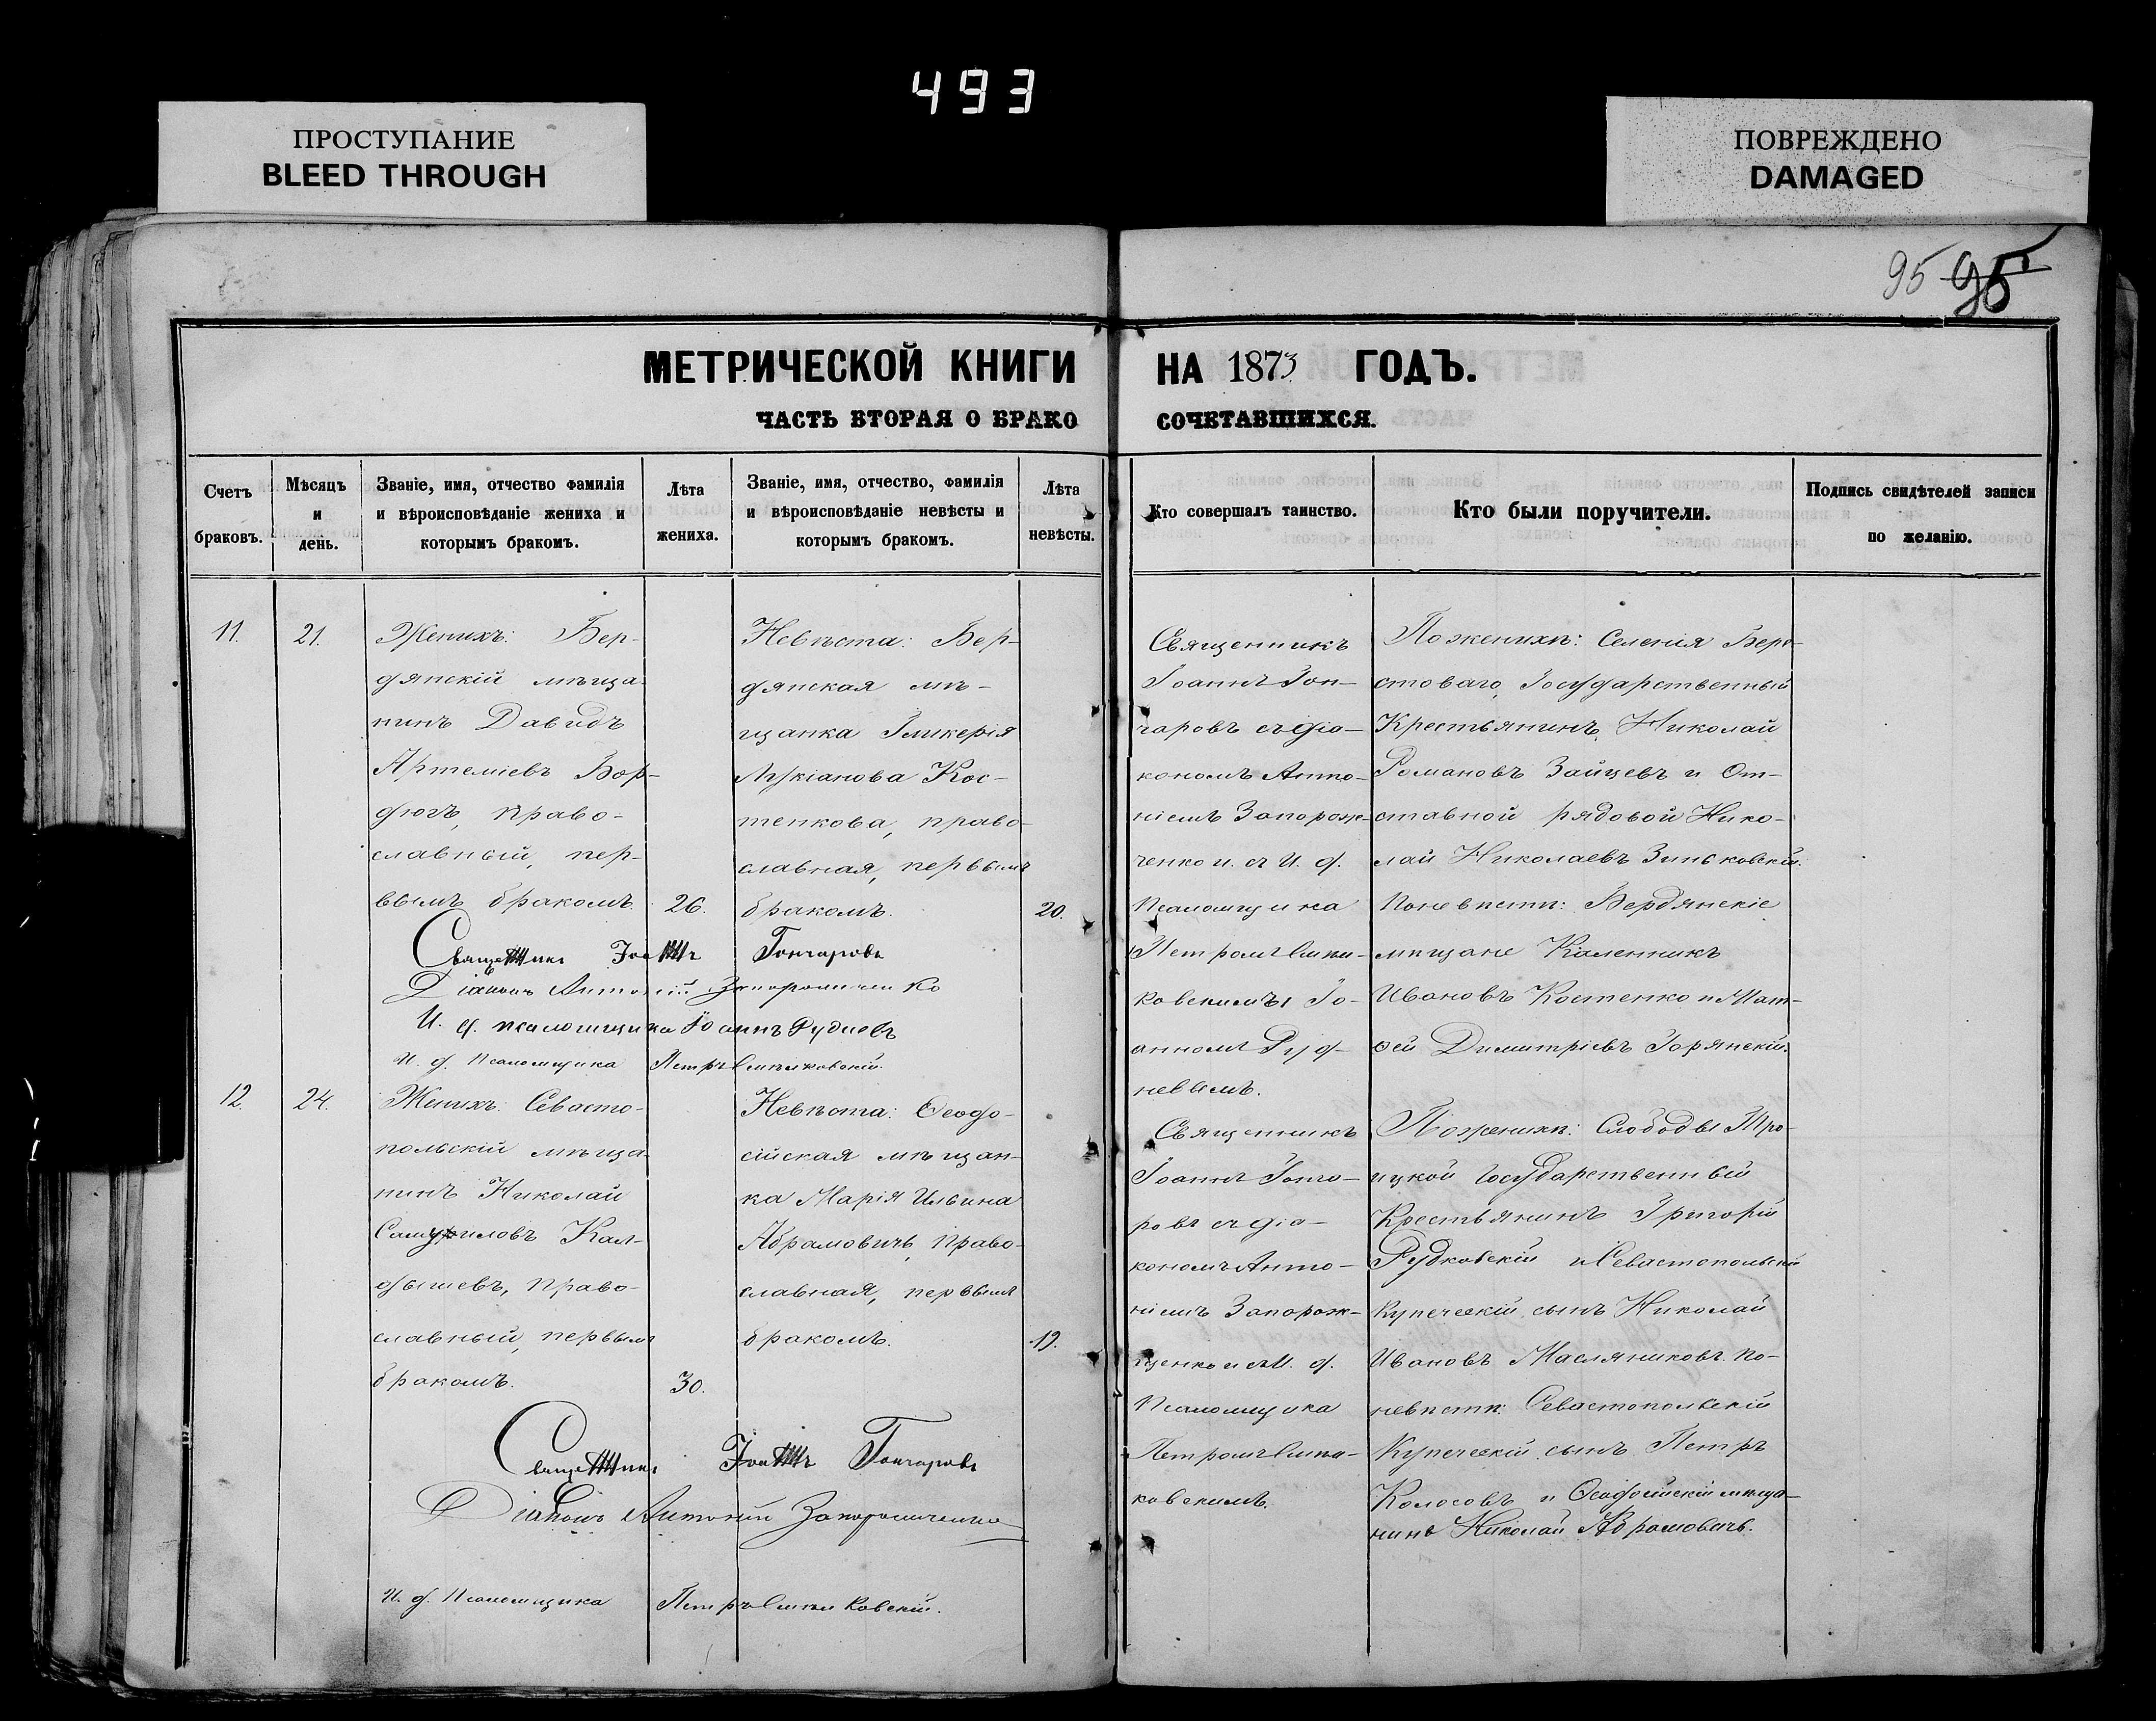 493
ПРОСТУПАНИЕ
BLEED THROUGH
ПОВРЕЖДЕНО
DAMAGED
95 95
МЕТРИЧЕСКОЙ КНИГИ НА 1873 ГОДЪ.
ЧАСТЬ ВТОРАЯ О БРАКО СОЧЕТАВШИХСЯ.
Счетъ
браковъ.
Мѣсяцъ
и
день.
Званіе, имя, отчество фамилія
и вѣроисповѣданіе жениха и
которымъ бракомъ.
Лѣта
жениха.
Званіе, имя, отчество, фамилія
и вѣроисповѣданіе невѣсты и
которымъ бракомъ.
Лѣта
невѣсты.
Кто совершалъ таинство.
Кто были поручители.
Подпись свидѣтелей записи
по желанію.
11.
21.
Женихъ: Бер-
дянскій мѣща-
нинъ Давидъ
Артеміевъ Бор-
дюгъ, право-
славный, пер-
вымъ бракомъ.
26.
Невѣста: Бер-
дянская мѣ-
щанка Гликерія
Лукіанова Кос-
тенкова, право-
славная, первымъ
бракомъ.
20.
Священникъ
Іоаннъ Гон-
чаровъ съ діа-
кономъ Анто-
ніемъ Запорож-
ченко и. съ И. д.
Псаломщика
Петромъ
ковскимъ Іо-
анномъ Руд-
невымъ.
По женихѣ: Селенія Верх-
стоваго, Государственный
Крестьянинъ, Николай
Романовъ Зайцевъ и От-
ставной рядовой Нико-
лай Николаевъ Зиньковскій.
По невѣстѣ: Бердянскіе
мѣщане Каленникъ
Ивановъ Костенко и Мат-
ѳей Димитріевъ Горянскій.
Священникъ Іоаннъ Гончаровъ
Діаконъ Антоній Запорожченко
И. д. псаломщика Іоаннъ Рудневъ
И. д. Псаломщика Петръ
12.
24.
Женихъ: Севасто-
польскій мѣща-
нинъ Николай
Самуиловъ Кал-
дышевъ, право-
славный, первымъ
бракомъ.
30.
Невѣста: Ѳеодо-
сійская мѣщан-
ка Марія Ильина
Абрамовичъ, право-
славная, первымъ
бракомъ.
19.
Священникъ
Іоаннъ Гонча-
ровъ съ діа-
кономъ Анто-
ніемъ Запорож-
ченко и съ И. д.
Псаломщика
Петромъ
ковскимъ.
По женихѣ: Слободы Тро-
ицкой Государственный
Крестьянинъ Григорій
Рудковскій и Севастопольскій
Купеческій сынъ Николай
Ивановъ Масляниковъ. По
невѣстѣ: Севастопольскій
Купеческій сынъ Петръ
Колосовъ и Ѳеодосійскій мѣща-
нинъ Николай Абрамовичъ.
Священникъ Іоаннъ Гончаровъ
Діаконъ Антоній Запорожченко
И. д. Псаломщика Петръ